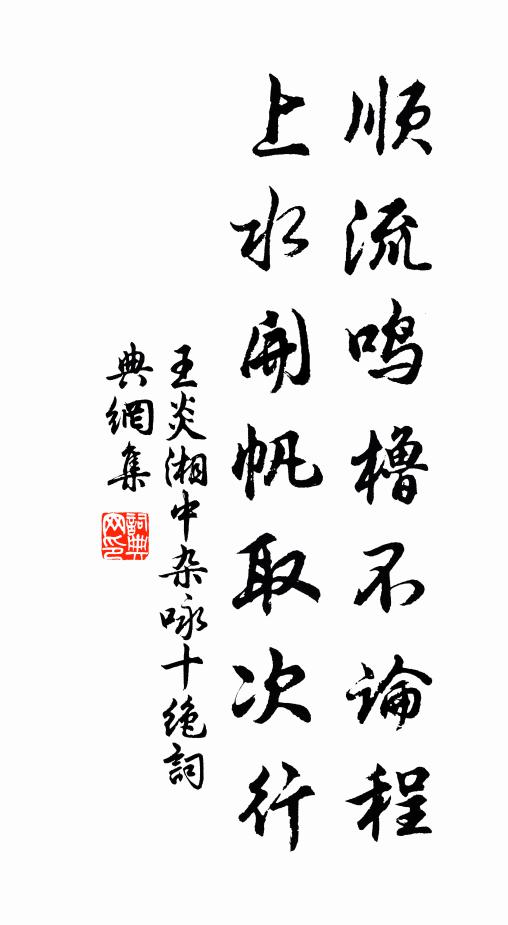 顺流鸣橹不论程
上水開帆取次行
王炎湘中杂咏十绝詞
典網集
詞典网印